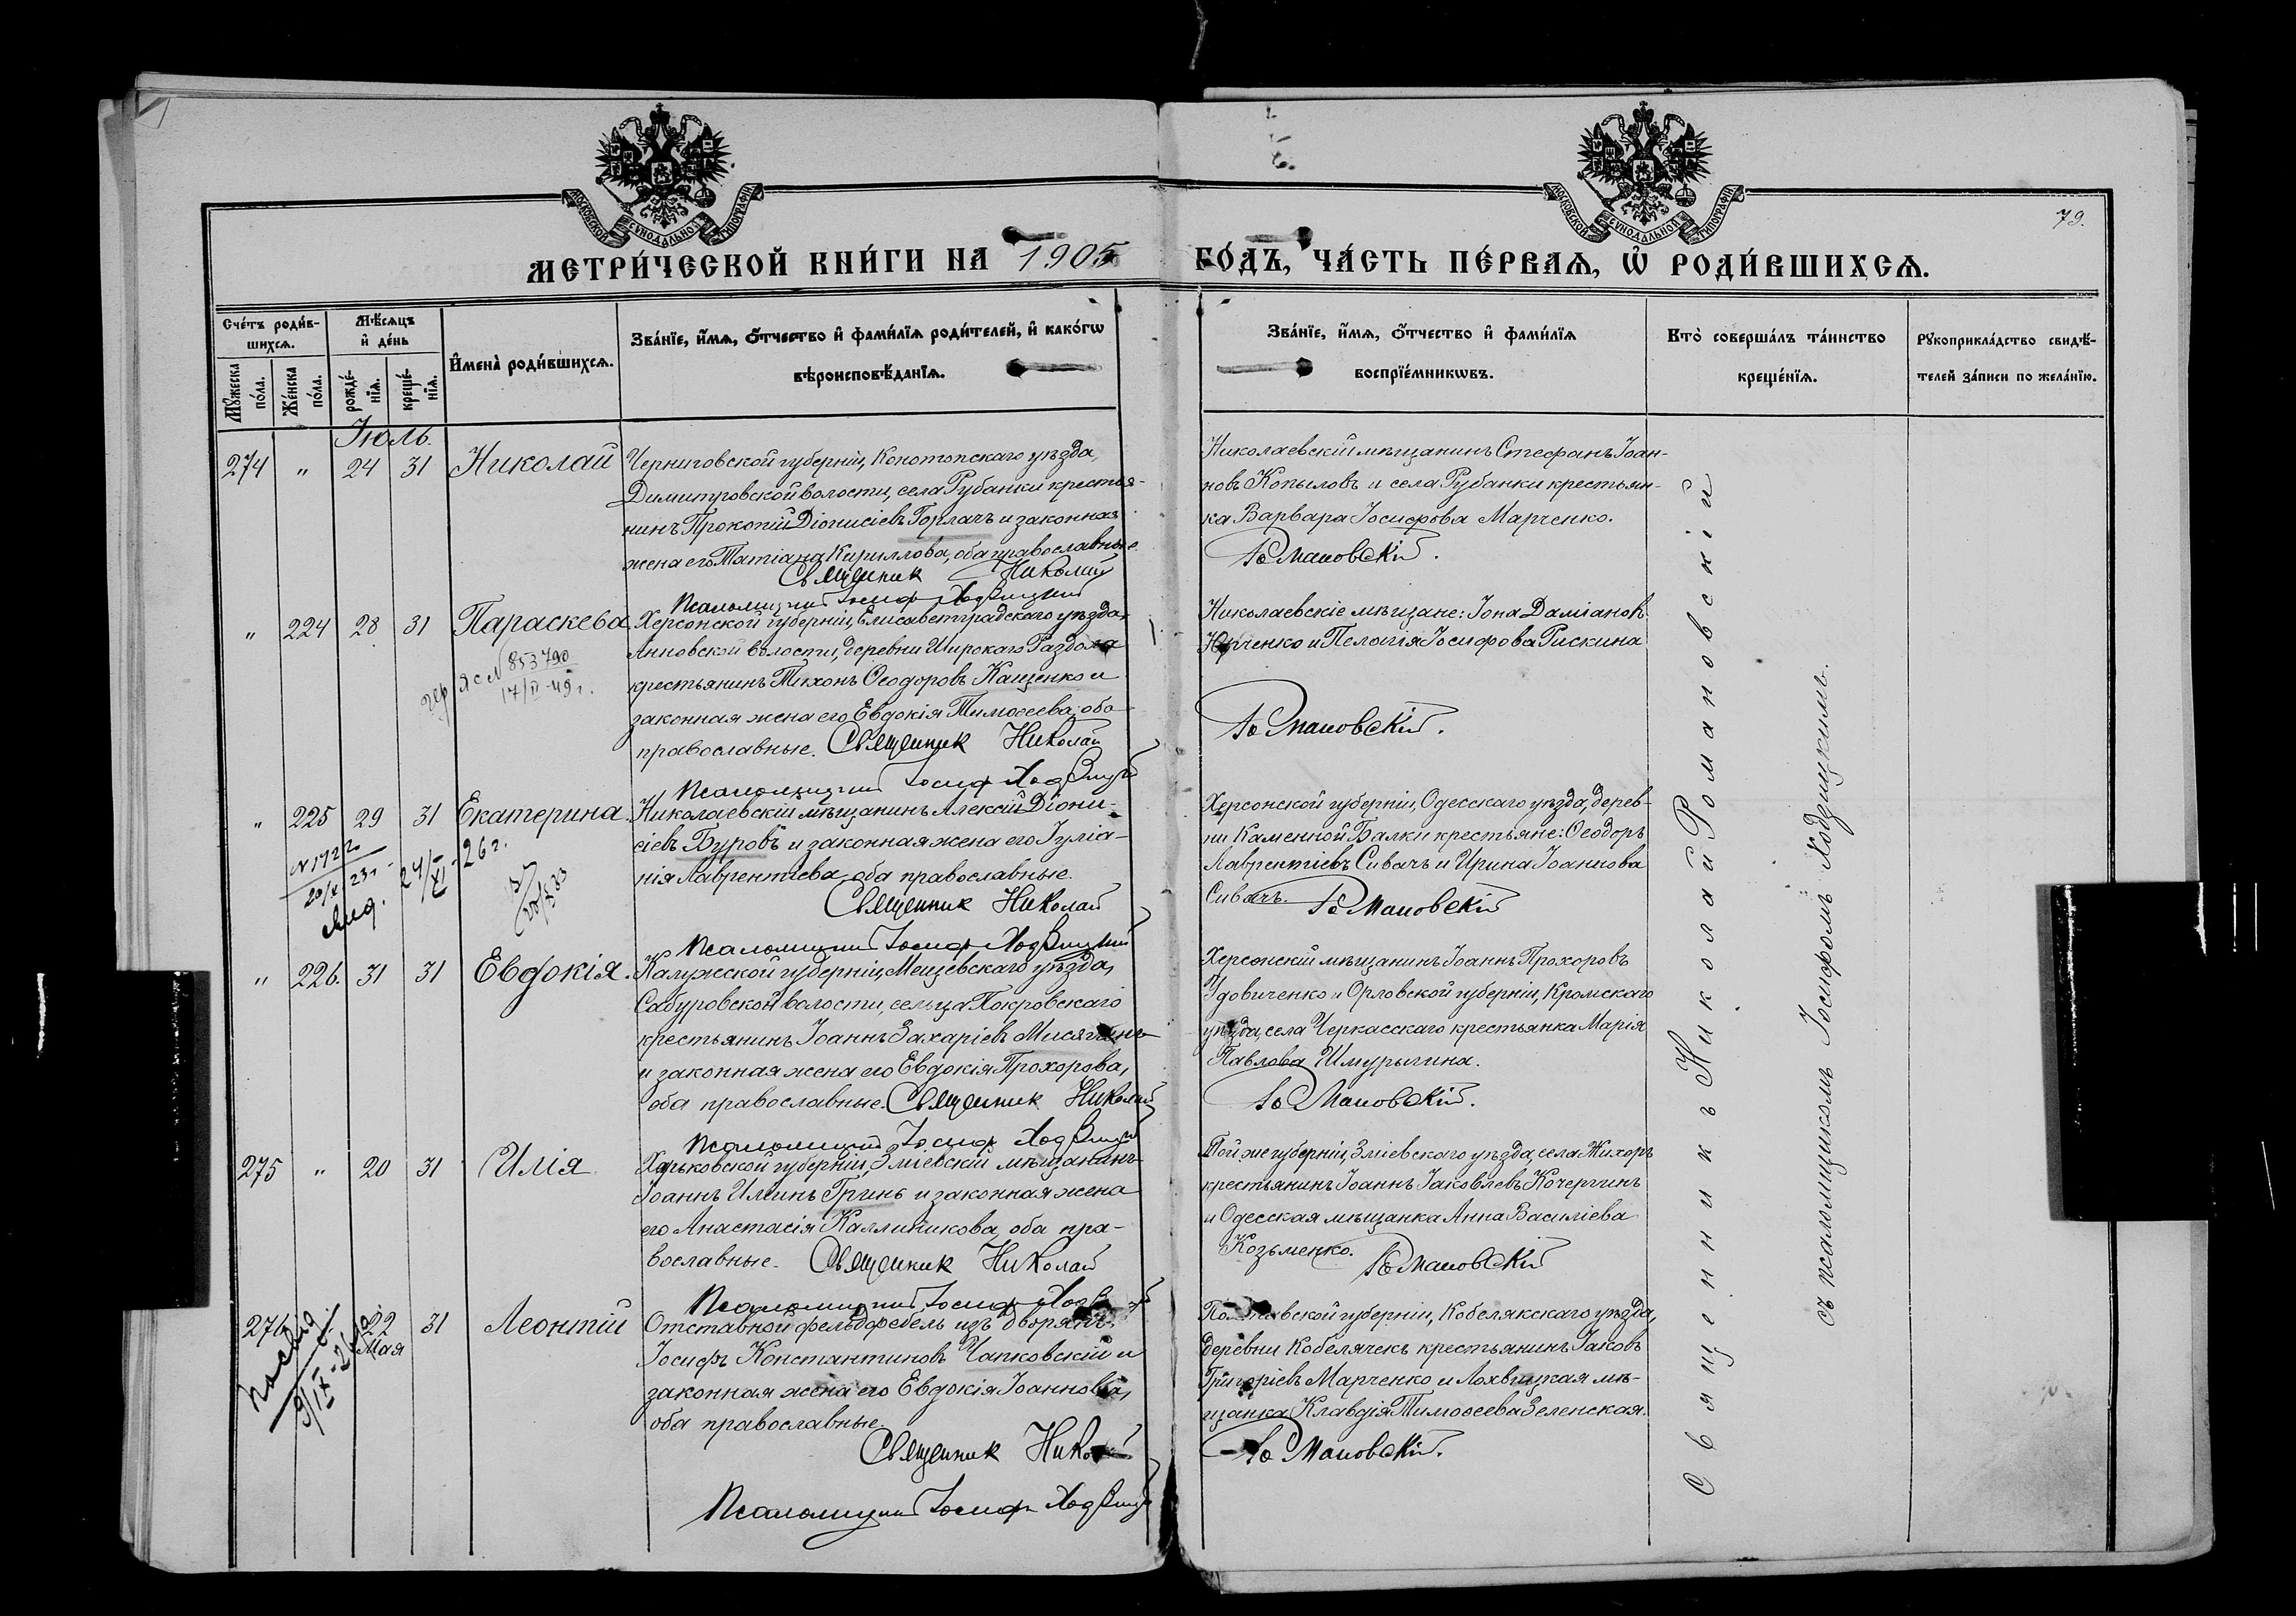 МОСКОВСКОЙ СѴНОДАЛЬНОЙ ТИПОГРАФІИ
МОСКОВСКОЙ СѴНОДАЛЬНОЙ ТИПОГРАФІИ
79.
МЕТРИ́ЧЕСКОЙ КНИ́ГИ НА 1905 ГО́ДЪ, ЧА́СТЬ ПЕ́РВАѦ, Ѡ҆ РОДИ́ВШИХСѦ.
Сче́тъ роди́в-
шихсѧ.
Мꙋ́жеска по́ла.
Же́нска по́ла.
Мѣ́сѧцъ
и҆ де́нь
рожде́-
нїѧ.
креще́-
нїѧ.
И҆мена̀ роди́вшихсѧ.
Зва́нїе, и҆́мѧ, ѻ҆́тчество и҆ фами́лїѧ роди́телей, и҆ како́гѡ
вѣроисповѣ́данїѧ.
Зва́нїе, и҆́мѧ, ѻ҆́тчество и҆ фами́лїѧ
воспрїе́мникѡвъ.
Кто̀ соверша́лъ та́инство
креще́нїѧ.
Рꙋкоприкла́дство свидѣ́-
телей за́писи по жела́нїю.
Іюль.
274 " 24 31 Николай
Черниговской губерніи, Конотопскаго уѣзда,
Димитровской волости, села Рубанки крестья-
нинъ Прокопій Діонисіевъ Горлачъ и законная
жена его Татіана Кириллова, оба православные.
Священник Николай
Псаломщикъ Іосиф Ходзицкий
Николаевскій мѣщанинъ Стефанъ Іоан-
новъ Копыловъ и села Рубанки крестьян-
ка Варвара Іосифова Марченко.
Романовскій.
" 224 28 31 Параскева
853790
17/II-49 г.
Херсонской губерніи, Елисаветградскаго уѣзда,
Анновской волости, деревни Широкаго Раздола
крестьянинъ Тихонъ Ѳеодоровъ Кащенко и
законная жена его Евдокія Тимоѳеева, оба
православные. Священник Николай
Псаломщикъ Іосиф Ходзицкий
Николаевскіе мѣщане: Іона Даміановъ
Юрченко и Пелагія Іосифова Рискина
Романовскій.
" 225 29 31 Екатерина.
24/XI-26 г.
Николаевскій мѣщанинъ Алексій Діони-
сіевъ Буровъ и законная жена его Іуліа-
нія Лаврентіева, оба православные.
Священник Николай
Псаломщикъ Іосиф Ходзицкий
Херсонской губерніи, Одесскаго уѣзда, дерев-
ни Каменной Балки крестьяне: Ѳеодоръ
Лаврентіевъ Сивачъ и Ирина Іоаннова
Сивачъ. Романовскій
" 226. 31 31 Евдокія.
Калужской губерніи, Мещевскаго уѣзда,
Сабуровской волости, сельца Покровскаго
крестьянинъ Іоаннъ Захаріевъ
и законная жена его Евдокія Прохорова,
оба православные. Священник Николай
Псаломщикъ Іосиф Ходзицкий
Херсонскій мѣщанинъ Іоаннъ Прохоровъ
Удовиченко и Орловской губерніи, Кромскаго
уѣзда, села Черкасскаго крестьянка Марія
Павлова Шмурыгина.
Романовскій.
275 " 20 31 Илія
Харьковской губерніи, Зміевскій мѣщанинъ
Іоаннъ Илiинъ Гринь и законная жена
его Анастасія Каллиникова, оба пра-
вославные. Священник Николай
Псаломщикъ Іосиф Ходзицкий
Той же губерніи, Зміевскаго уѣзда, села Жихоръ
крестьянинъ Іоаннъ Іаковлевъ Кочергинъ
и Одесская мѣщанка Анна Василіева
Козьменко. Романовскій
276 22 Мая 31 Леонтій
Отставной фельдфебель изъ дворянъ
Іосифъ Константиновъ Чапковскій и
законная жена его Евдокія Іоаннова,
оба православные.
Священник Николай
Псаломщикъ Іосиф Ходзицкий
Полтавской губерніи, Кобелякскаго уѣзда,
деревни Кобелячекъ крестьянинъ Іаковъ
Григоріевъ Марченко и Лохвицкая мѣ-
щанка Клавдія Тимоѳеева Зеленская.
Романовскій.
Священникъ Николай Романовскій
съ псаломщикомъ Іосифомъ Ходзицкимъ.